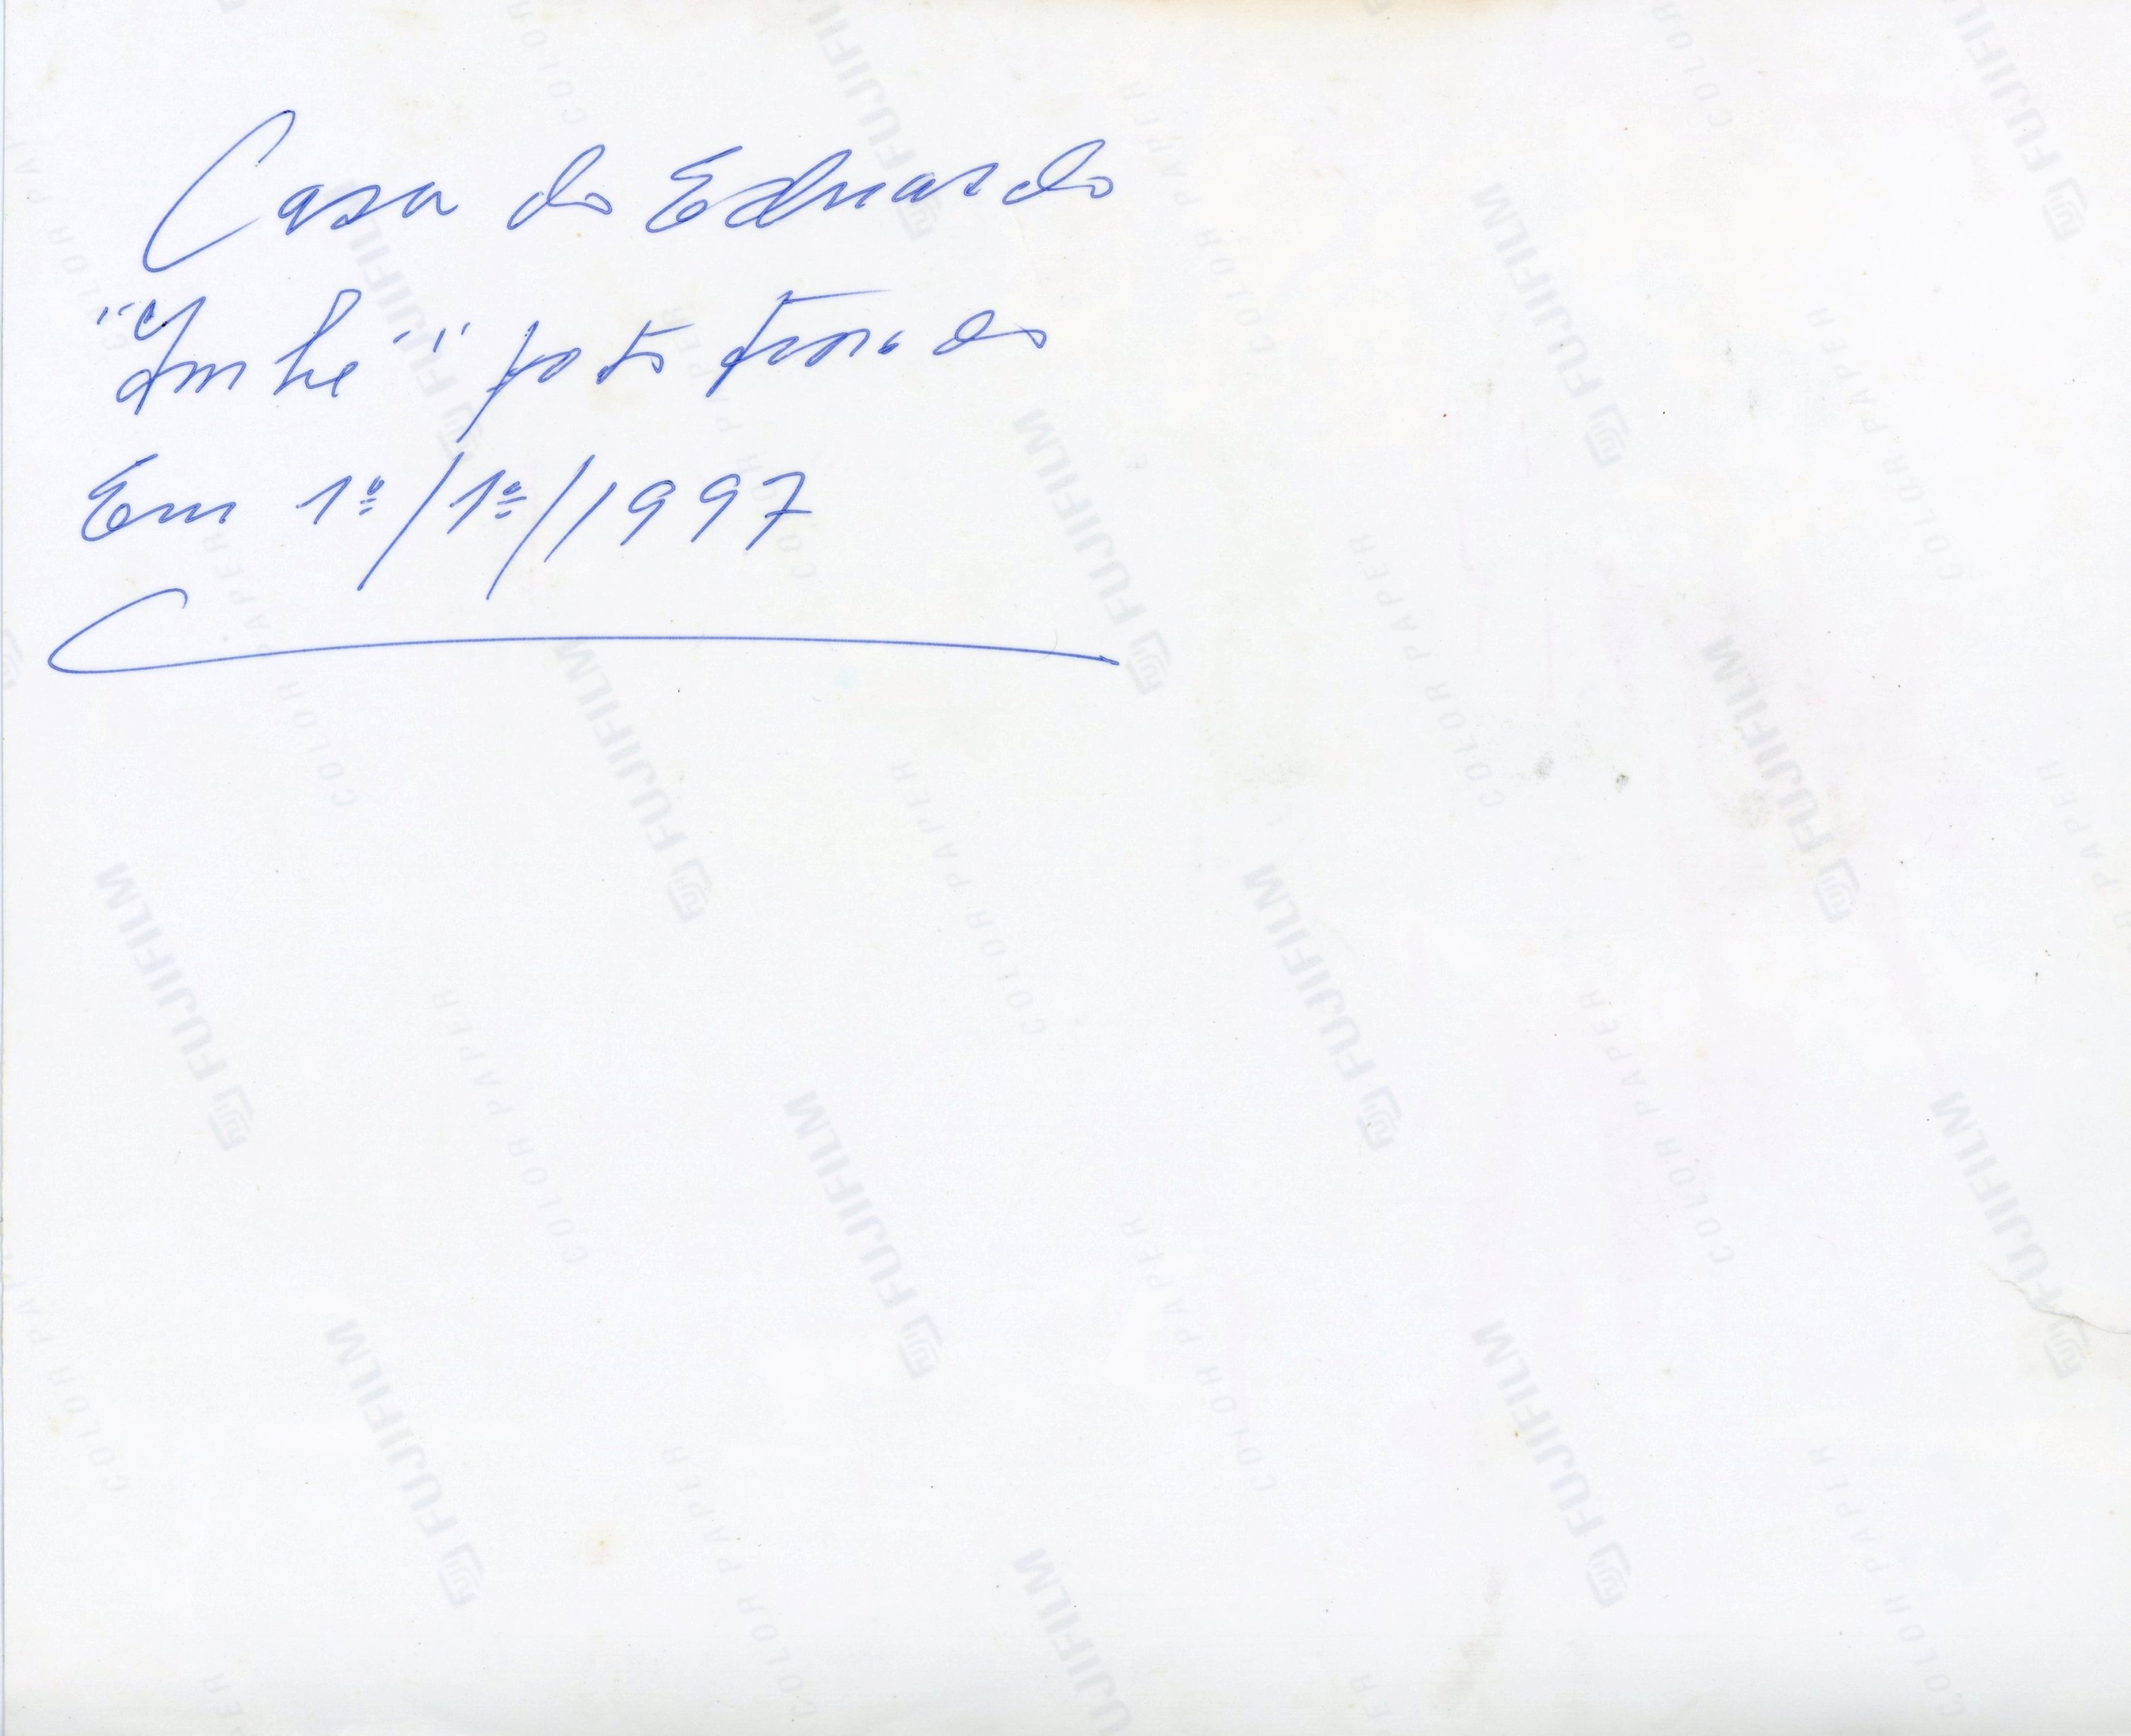 Casa do Eduardo
"Imbé" foto tirada
Em 1º/1º/1997
FUJIFILM
COLOR PAPER